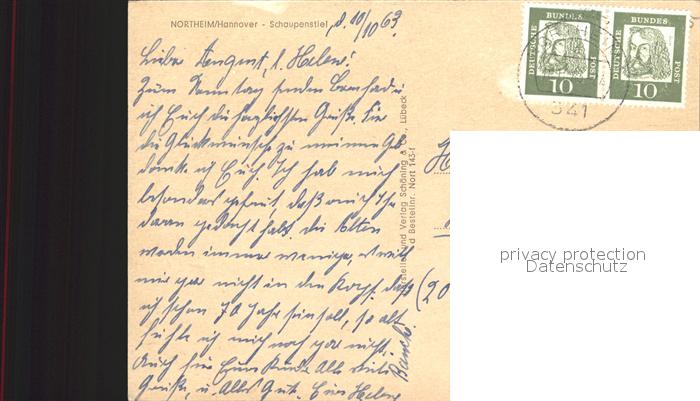 NORTHEIM/Hannover - Schaupenstiel, d. 10/10 63.
Liebe August, l. Helene!
Zum Sonntag senden
ich Euch die herzlichsten Grüße. Für
die Glückwünsche zu meinem Geb
danke ich Euch. Ich hab mich
besonders gefreut, daß auch Ihr
daran gedacht habt. die Alten
werden immer weniger, will
mir gar nicht in den Kopf, daß
ich schon 70 Jahr sein soll, so alt
fühle ich mich noch gar nicht.
Auch für Eure Kinder alle viele
Grüße, u. Alles Gute. Eure Helene
Verlag Schöning & Co., Lübeck
Bestellnr. Nort 143-f
DEUTSCHE BUNDESPOST
10
DEUTSCHE BUNDESPOST
10
341
(20
privacy protection
Datenschutz